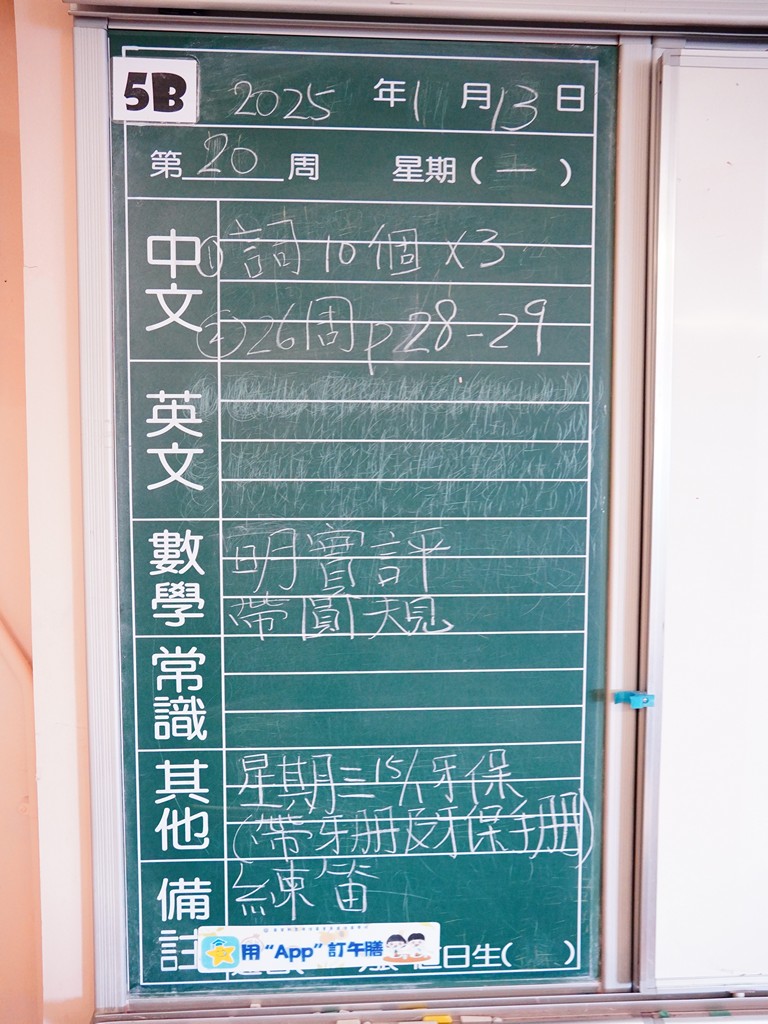 5B 2025 年 1 月 13 日
第 20 周 星期 ( 一 )
中文
① 詞 10 個 X3
② 26周 p 28-29
英文
數學
明實評
帶圓規
常識
其他
星期三 15/1 牙保
(帶牙册及牙保手册)
備註
練笛
用 “App” 訂午膳
值日生( )